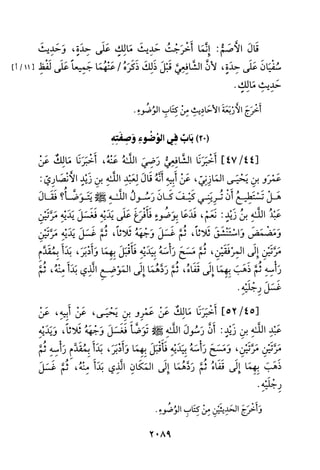 قَالَ الأَصَمُّ: إِنَّمَا أَخْرَجْتُ حَدِيثَ مَالِكٍ عَلَى حِدَةٍ، وَحَدِيثَ
سُفْيَانَ عَلَى حِدَةٍ، لأَنَّ الشَّافِعِيَّ قَبْلَ ذَلِكَ ذَكَرَهُ/ عَنْهُمَا جَمِيعاً عَلَى لَفْظِ [١١/أ]
حَدِيثِ مَالِكٍ.
أَخْرَجَ الأَرْبَعَةَ الأَحَادِيثِ مِنْ كِتَابِ الوُضُوءِ.
(٢٠) بَابٌ فِي الوُضُوءِ وَصِفَتِهِ
[٤٧/٤٤] أَخْبَرَنَا الشَّافِعِيُّ رَضِيَ اللَّهُ عَنْهُ، أَخْبَرَنَا مَالِكٌ عَنْ
عَمْرِو بنِ يَحْيَى المَازِنِيِّ، عَنْ أَبِيهِ أَنَّهُ قَالَ لِعَبْدِ اللَّهِ بنِ زَيْدٍ الأَنْصَارِيِّ:
هَلْ تَسْتَطِيعُ أَنْ تُرِيَنِي كَيْفَ كَانَ رَسُولُ اللَّهِ ﷺ يَتَوَضَّأُ؟ فَقَالَ
عَبْدُ اللَّهِ بنُ زَيْدٍ: نَعَمْ، فَدَعَا بِوَضُوءٍ فَأَفْرَغَ عَلَى يَدَيْهِ فَغَسَلَ يَدَيْهِ مَرَّتَيْنِ
وَمَضْمَضَ وَاسْتَنْشَقَ ثَلاَثاً، ثُمَّ غَسَلَ وَجْهَهُ ثَلاَثاً، ثُمَّ غَسَلَ يَدَيْهِ مَرَّتَيْنِ
مَرَّتَيْنِ إِلَى المِرْفَقَيْنِ، ثُمَّ مَسَحَ رَأْسَهُ بِيَدَيْهِ فَأَقْبَلَ بِهِمَا وَأَدْبَرَ، بَدَأَ بِمُقَدَّمِ
رَأْسِهِ ثُمَّ ذَهَبَ بِهِمَا إِلَى قَفَاهُ، ثُمَّ رَدَّهُمَا إِلَى المَوْضِعِ الَّذِي بَدَأَ مِنْهُ، ثُمَّ
غَسَلَ رِجْلَيْهِ.
[٥٢/٤٥] أَخْبَرَنَا مَالِكٌ عَنْ عَمْرِو بنِ يَحْيَى، عَنْ أَبِيهِ، عَنْ
عَبْدِ اللَّهِ بنِ زَيْدٍ: أَنَّ رَسُولَ اللَّهِ ﷺ تَوَضَّأَ فَغَسَلَ وَجْهَهُ ثَلاَثاً، وَيَدَيْهِ
مَرَّتَيْنِ مَرَّتَيْنِ، وَمَسَحَ رَأْسَهُ بِيَدَيْهِ فَأَقْبَلَ بِهِمَا وَأَدْبَرَ، بَدَأَ بِمُقَدَّمِ رَأْسِهِ ثُمَّ
ذَهَبَ بِهِمَا إِلَى قَفَاهُ ثُمَّ رَدَّهُمَا إِلَى المَكَانِ الَّذِي بَدَأَ مِنْهُ، ثُمَّ غَسَلَ
رِجْلَيْهِ.
وَأَخْرَجَ الحَدِيثَيْنِ مِنْ كِتَابِ الوُضُوءِ.
٢٠٨٩